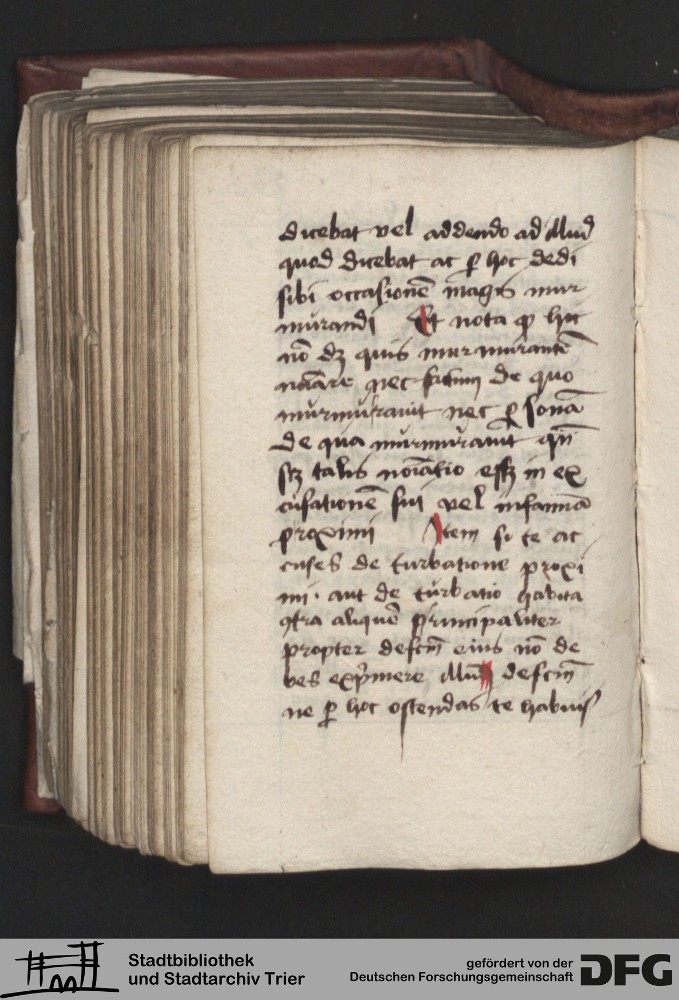 dicebat vel addendo ad illud
quod dicebat ac p̲ hoc dedi
sibi occasionē magis mur
murandi Et nota ꝙ hic
nō dꝫ quis murmurantē
noīare nec factum de quo
murmurauit nec p̲sonā
de qua murmurauit qn̄
scꝫ talis noīatio essꝫ in ex
cusationē sui vel infamiā
proximi Item si te ac
cuses de turbatione proxi
mi aut de turbatio habita
ꝯtra aliquē principaliter
propter defcm̄ eius nō de
bes exp̄mere illum defcm̄
ne p̲ hoc ostendas te habuis
Stadtbibliothek
und Stadtarchiv Trier
gefördert von der
Deutschen Forschungsgemeinschaft
DFG